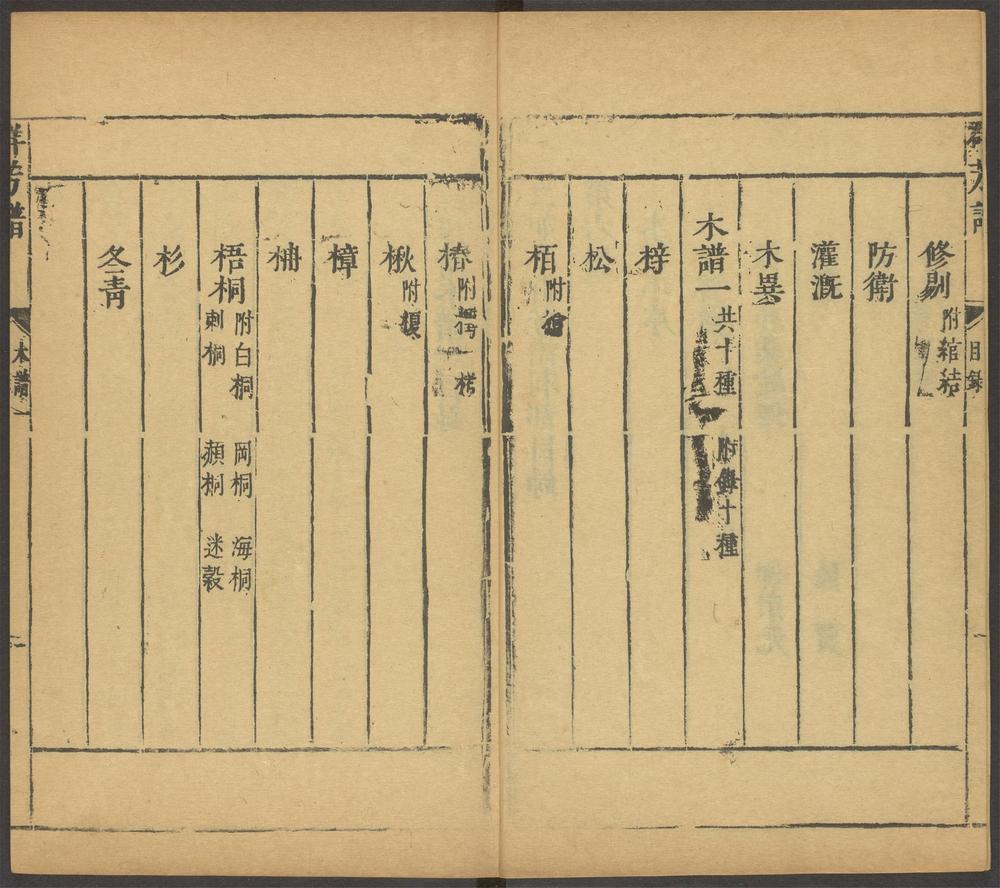 目錄
修剔附綰結
防衛
灌溉
木異
木譜一共十種 附錄十種
梓
松
栢附
椿附 栲
楸附榎
樟
楠
梧桐附白桐 岡桐 海桐
刺桐 頳桐 迷穀
杉
冬青
群芳譜
木譜